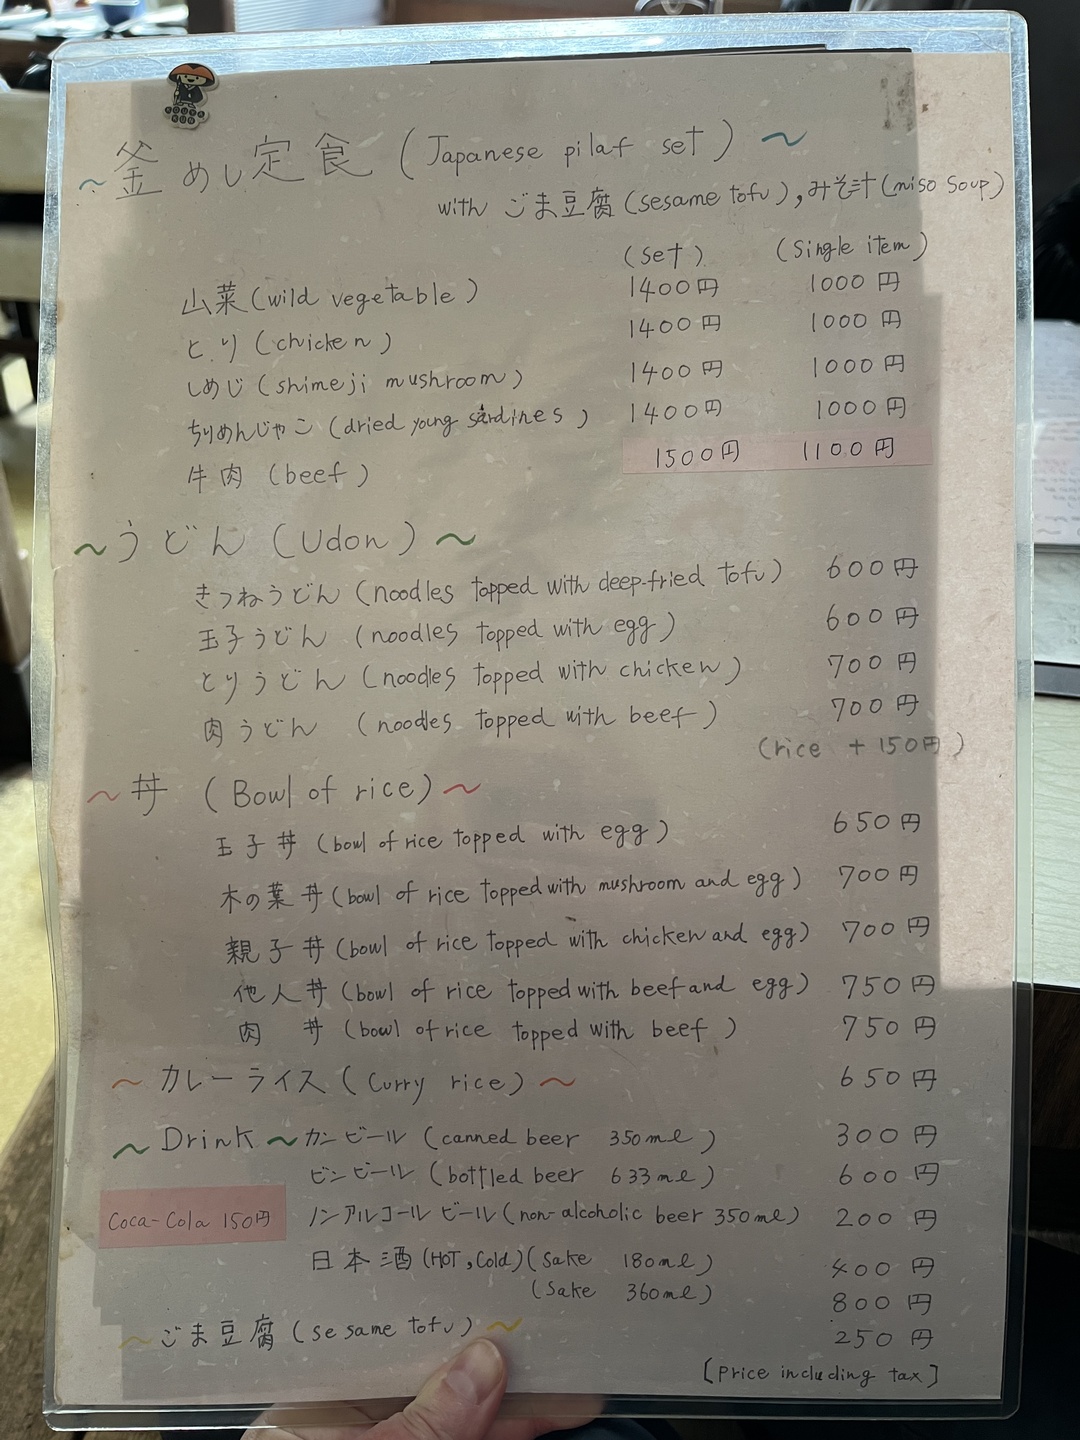 KOUYA
KUN
~釜めし定食 (Japanese pilaf set) ~
with ごま豆腐 (sesame tofu), みそ汁 (miso soup)
(set) (single item)
山菜 (wild vegetable) 1400円 1000円
とり (chicken) 1400円 1000円
しめじ (shimeji mushroom) 1400円 1000円
ちりめんじゃこ (dried young sardines) 1400円 1000円
牛肉 (beef) 1500円 1100円
~うどん (Udon) ~
きつねうどん (noodles topped with deep-fried tofu) 600円
玉子うどん (noodles topped with egg) 600円
とりうどん (noodles topped with chicken) 700円
肉うどん (noodles topped with beef) 700円
(rice + 150円)
~丼 (Bowl of rice) ~
玉子丼 (bowl of rice topped with egg) 650円
木の葉丼 (bowl of rice topped with mushroom and egg) 700円
親子丼 (bowl of rice topped with chicken and egg) 700円
他人丼 (bowl of rice topped with beef and egg) 750円
肉丼 (bowl of rice topped with beef) 750円
~カレーライス (Curry rice) ~ 650円
~Drink~ カンビール (canned beer 350ml) 300円
ビンビール (bottled beer 633ml) 600円
Coca-Cola 150円 ノンアルコールビール (non-alcoholic beer 350ml) 200円
日本酒 (HOT, Cold) (Sake 180ml) 400円
(Sake 360ml) 800円
~ごま豆腐 (sesame tofu) ~ 250円
[Price including tax]